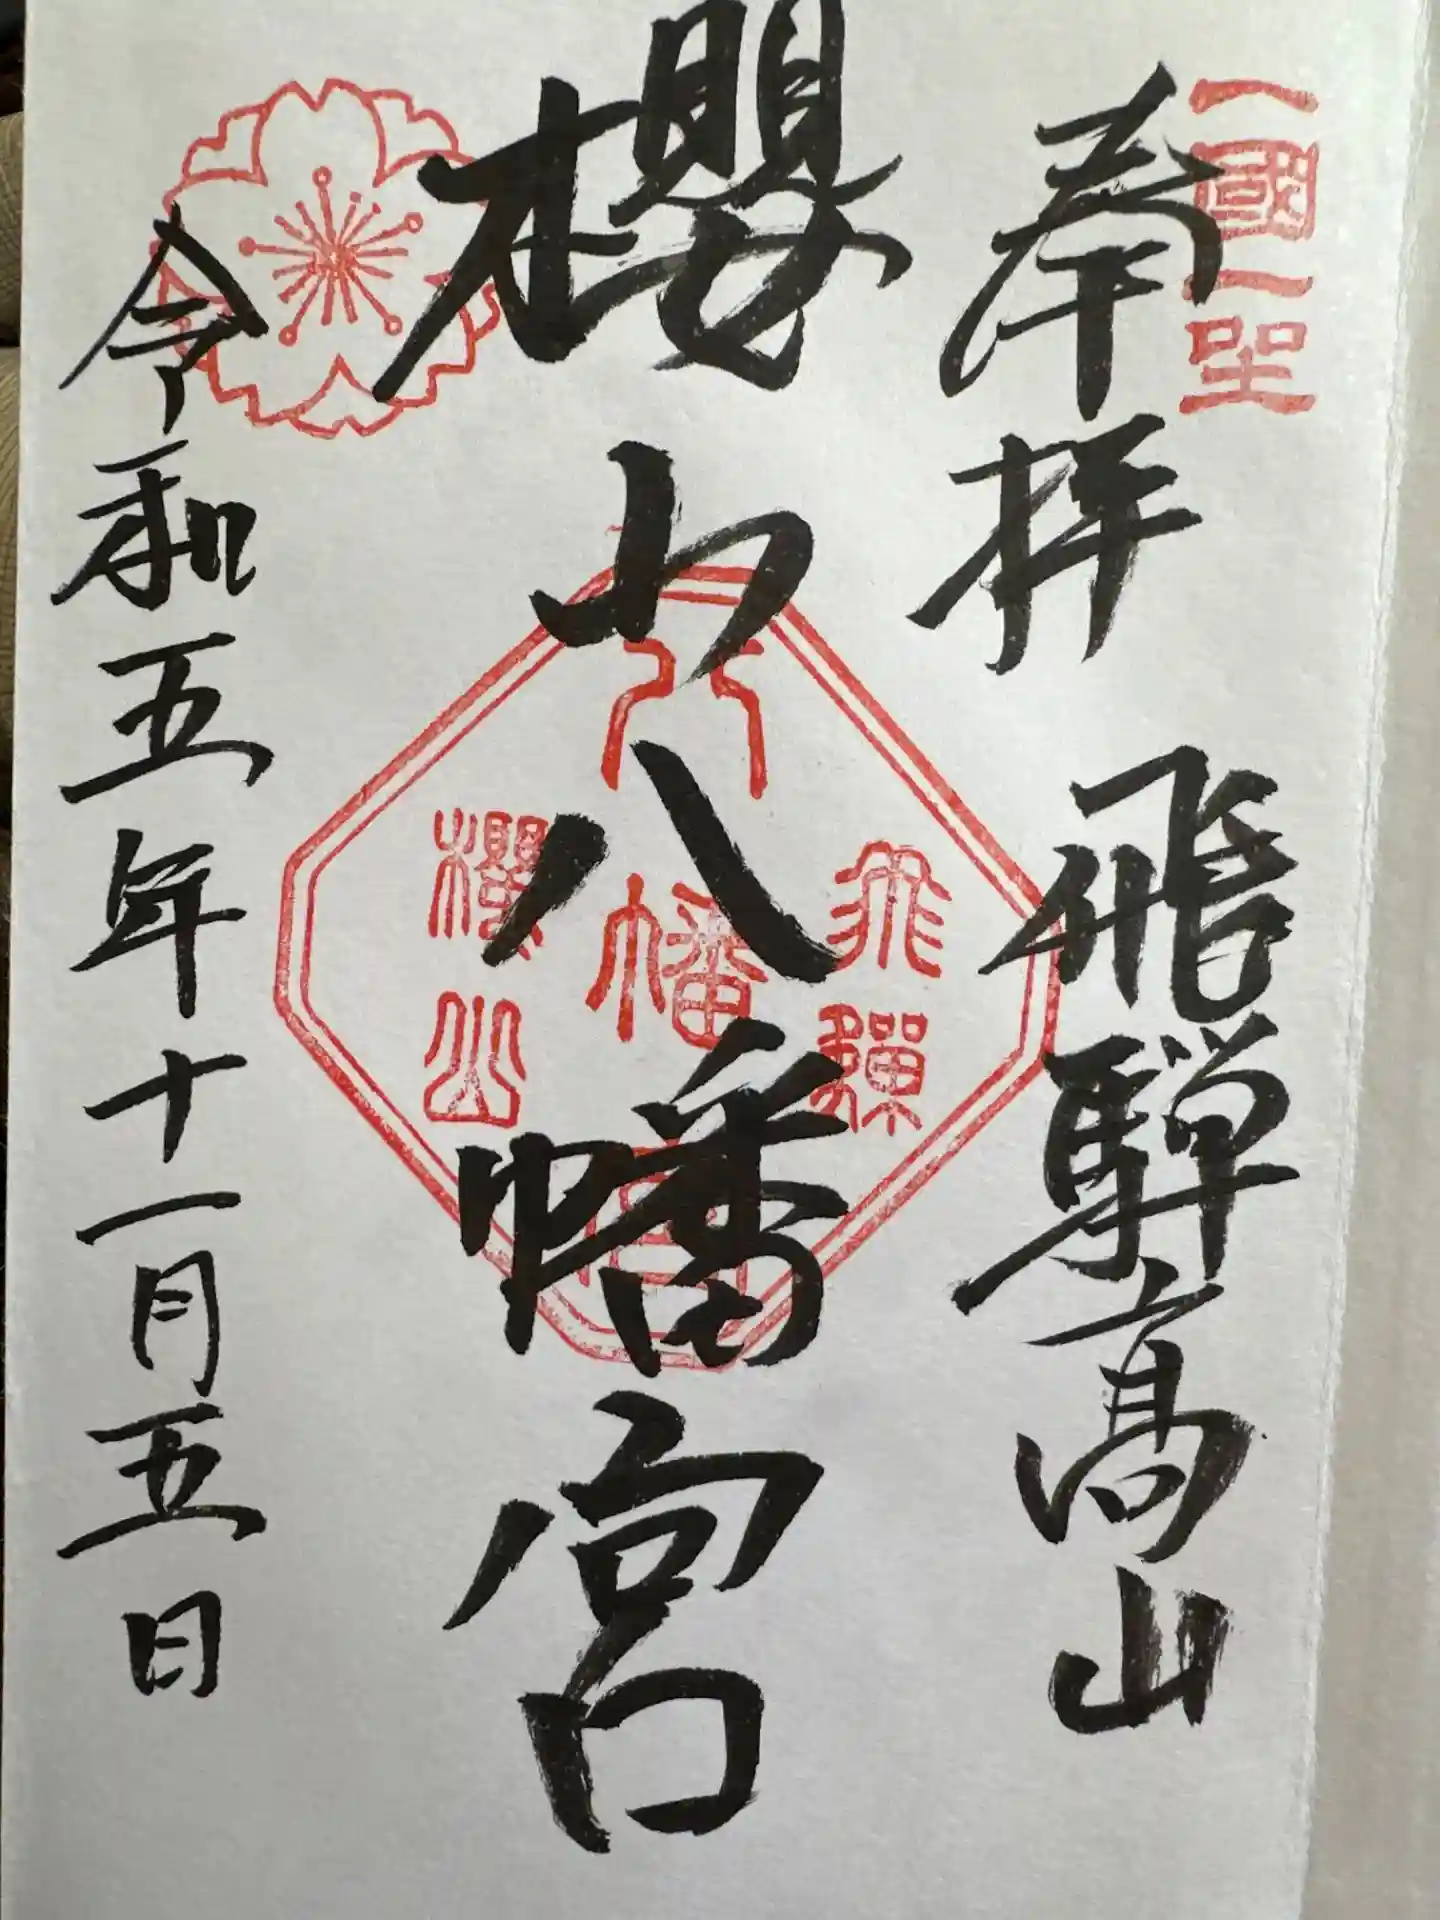 一國一社
奉拝 飛騨高山
櫻山八幡宮
飛騨
八幡宮
櫻山
令和五年十一月五日